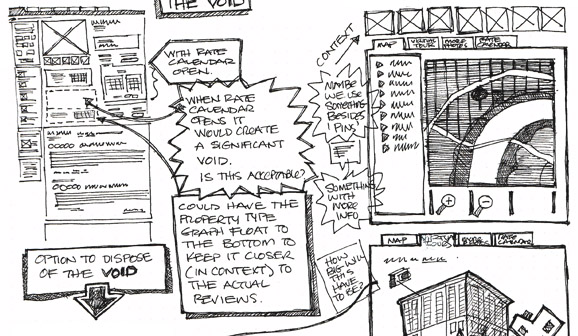 THE VOID
WITH RATE
CALENDAR
OPEN.
WHEN RATE
CALENDAR
OPENS IT
WOULD CREATE
A SIGNIFICANT
VOID.
IS THIS ACCEPTABLE?
COULD HAVE THE
PROPERTY TYPE
GRAPH FLOAT
TO THE BOTTOM TO
KEEP IT CLOSER
(IN CONTEXT) TO
THE ACTUAL
REVIEWS.
OPTION TO DISPOSE
OF THE VOID
CONTEXT
MAYBE
WE USE
SOMETHING
BESIDES
"PINS"
SOMETHING
WITH
MORE
INFO
HOW
BIG
THIS
HAVE
TO BE?
MAP
VIRTUAL
TOUR
MORE
PHOTOS
RATE
CALENDAR
MAP
VIRTUAL
TOUR
MORE
PHOTOS
RATE
CALENDAR